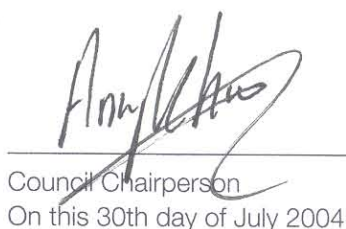 Council Chairperson
On this 30th day of July 2004